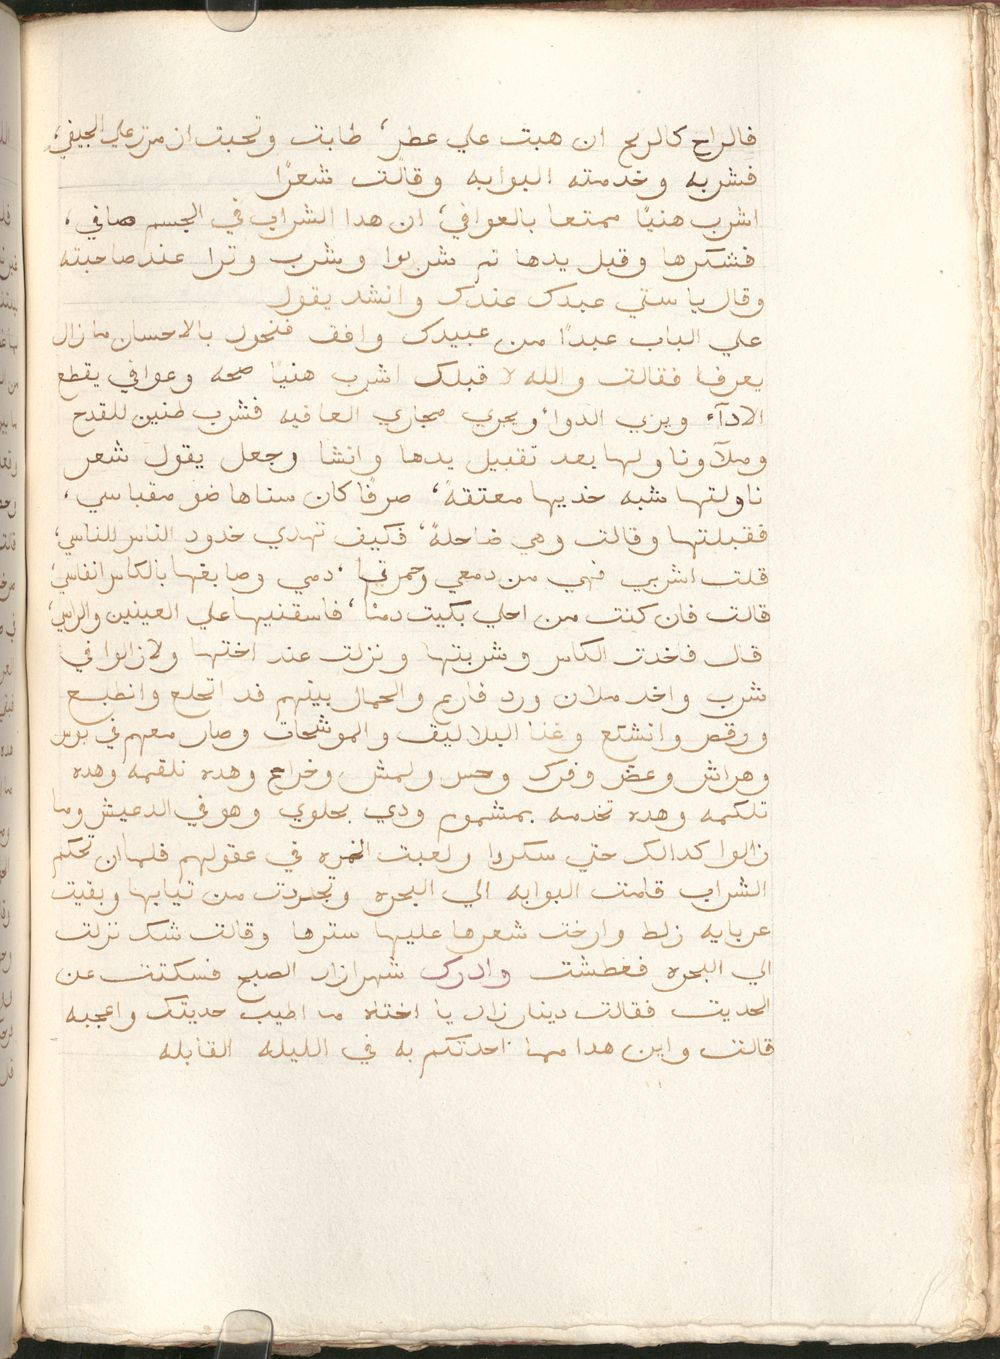 فالراح كالريح ان هبت علي عطر، طابت وتخبت ان مرت علي الجيفي،
فشربه وخدمته البوابه وقالت شعرًا
اشرب هنيًا ممتعا بالعوافي، ان هدا الشراب في الجسم صافي،
فشكرها وقبل يدها تم شربوا وشرب وترا عند صاحبته
وقال يا ستي عبدك عندك وانشد يقول
علي الباب عبدًا من عبيدك واقف فنحوك بالاحسان ما زال
يعرفا فقالت والله لا قبلك اشرب هنيًا صحه وعوافي يقطع
الادآء ويزب الدوا، ويجري مجاري العافيه فشرب طنين للقدح
وملآ وناولها بعد تقبيل يدها وانشا وجعل يقول شعر
ناولتها شبه خديها معتقةً، صرفًا كان سناها ضو مقباسي،
فقبلتها وقالت وهي ضاحلةً، فكيف تهدي خدود الناس للناسي،
قلت اشربي فهي من دمعي وحمرتها، دمي وصابغها بالكاس انفاسي،
قالت فان كنت من اجلي بكيت دمًا، فاسقنيها علي العينين والراس،
قال فاخدت الكاس وشربتها ونزلت عند اختها ولا زالوا في
شرب واخد ملان ورد فارع والحمال بينهم قد اتخلع وانطبع
ورقص وانشتع وغنا البلاليف والموشحات وصار معهم في بوس
وهراش وعض وفرك وحس ولمش وخراع وهده تلقمه وهده
تلكمه وهده تخدمه بمشموم ودي بحلوي وهو في الدعيش وما
زالوا كدالك حتي سكروا ولعبت الخمره في عقولهم فلما ان تحكم
الشراب قامت البوابه الي البحره وتجردت من تيابها وبقيت
عريايه زلط وارخت شعرها عليها سترها وقالت شك نزلت
الي البحره فغطشت وادرك شهرازاد الصبح فسكتت عن
الحديت فقالت دينارزاد يا اختاه ما اطيب حديتك واعجبه
قالت واين هدا مما احدتكم به في الليله القابله